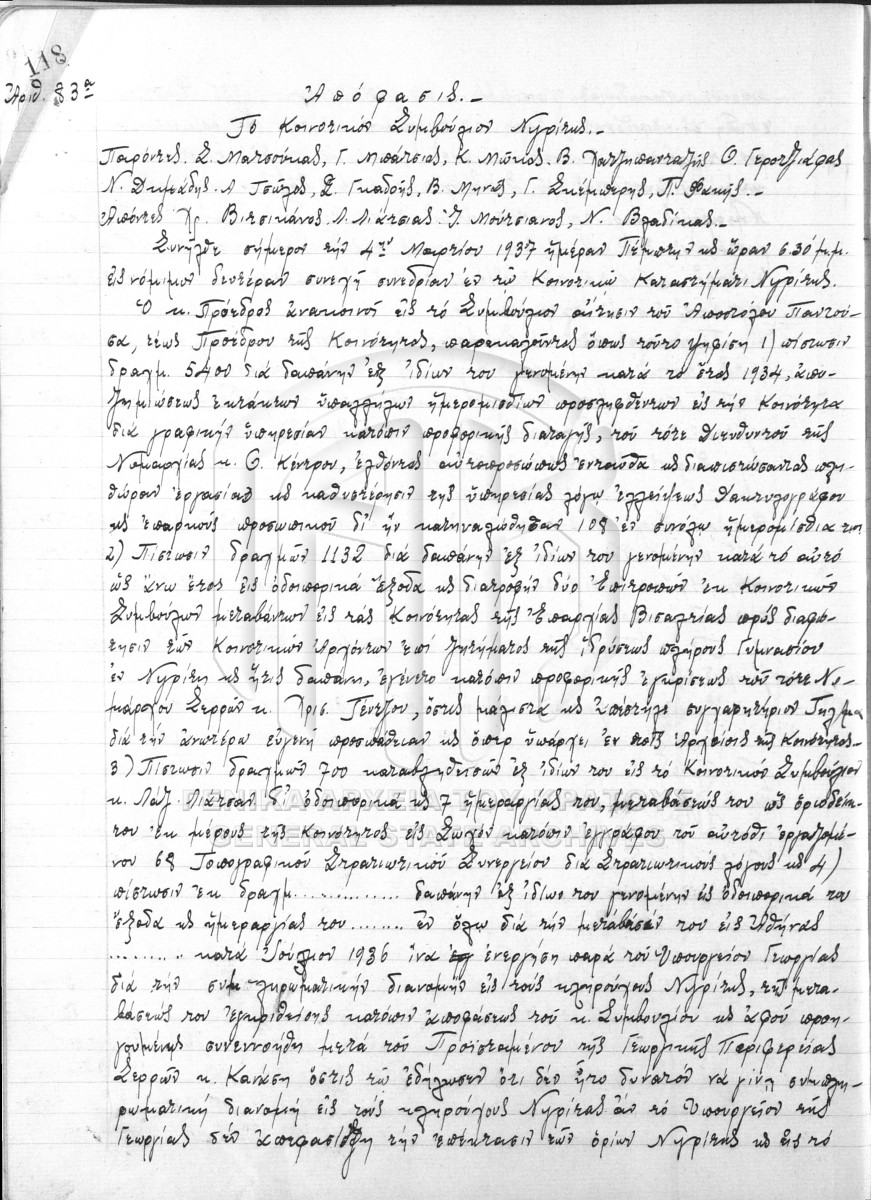 118
Ἀριθ. 83η
Ἀπόφασις.-
Τὸ Κοινοτικὸν Συμβούλιον Νιγρίτης.-
Παρόντες. Σ. Ματσούκας, Γ. Μπάτσιος, Κ. Μῶκος. Β. Χατζηπανταζῆς Θ. Γεροτζιάφας
Ν. Δημάδης. Α Τσῶλες, Σ. Γκαδρῆς, Β. Μηνᾶς, Γ. Σκέμπερης, Π. Φακῆς.-
Ἀπόντες Χρ. Βιτσικάνος. Λ. Λιάτσιας Ἰ. Μούτσιανος, Ν. Βλαδίκας.-
Συνῆλθε σήμερον τὴν 4ην Μαρτίου 1937 ἡμέραν Πέμπτην κς ὥραν 6.30' μ.μ.
εἰς νόμιμον δευτέραν συνεχῆ συνεδρίαν ἐν τῶ Κοινοτικῶ Καταστήματι Νιγρίτης.
Ὁ κ. Πρόεδρος ἀνακοινοῖ εἰς τὸ Συμβούλιον αἴτησιν τοῦ Ἀποστόλου Παντού-
σα, τέως Προέδρου τῆς Κοινότητος, παρακαλοῦντος ὅπως τοῦτο ψηφίση 1) πίστωσιν
δραχμ. 5400 διὰ δαπάνην ἐξ ἰδίων του γενομένην κατὰ τὸ ἔτος 1934, ἀπο-
ζημιώσεως ἐκτάκτων ὑπαλλήλων ἡμερομισθίων προσληφθέντων εἰς τὴν Κοινότητα
διὰ γραφικὴν ὑπηρεσίαν κατόπιν προφορικῆς διαταγῆς, τοῦ τότε Διευθυντοῦ τῆς
Νομαρχίας κ. Θ. Κέντρου, ἐλθόντος αὐτοπροσώπως ἐνταῦθα κς διαπιστώσαντος πλη-
θώραν ἐργασίας κς καθυστέρησιν τῆς ὑπηρεσίας λόγω ἐλλείψεως Δακτυλογράφου
κς ἐπαρκοῦς προσωπικοῦ δι' ἣν κατηναλώθησαν 108 ἐν συνόλω ἡμερομίσθια
2) Πίστωσιν δραχμῶν 1132 διὰ δαπάνην ἐξ ἰδίων του γενομένην κατὰ τὸ αὐτὸ
ὡς ἄνω ἔτος εἰς ὁδοιπορικὰ ἔξοδα κς διατροφὴν δύο Ἐπιτροπῶν ἐκ Κοινοτικῶν
Συμβούλων μεταβάντων εἰς τὰς Κοινότητας τῆς Ἐπαρχίας Βισαλτίας πρὸς διαφώ-
τησιν τῶν Κοινοτικῶν Ἀρχόντων ἐπὶ ζητήματος τῆς ἱδρύσεως πλήρους Γυμνασίου
ἐν Νιγρίτη κς ἥτις δαπάνη, ἐγένετο κατόπιν προφορικῆς ἐγκρίσεως τοῦ τότε Νο-
μάρχου Σερρῶν κ. Χρισ. Γέντζου, ὅστις μάλιστα κς ἀπέστειλε συγχαρητήριον Τηλ/μα
διὰ τὴν ἀνωτέρω εὐγενῆ προσπάθειαν κς ὅπερ ὑπάρχει ἐν τοῖς Ἀρχείοις τῆς Κοινότητος-
3) Πίστωσιν δραχμῶν 700 καταβληθεισῶν ἐξ ἰδίων του εἰς τὸ Κοινοτικὸν Σύμβουλον
κ. Λάζ. Λιάτσαν δι' ὁδοιπορικὰ κς 7 ἡμεραργίας του, μεταβάσεώς του ὡς ὁρισθέν-
του ἐκ μέρους τῆς Κοινότητος εἰς Σωχὸν κατόπιν ἐγγράφου τοῦ αὐτόθι ἐργαζομέ-
νου 68 Τοπογραφικοῦ Στρατιωτικοῦ Συνεργείου διὰ Στρατιωτικοὺς λόγους κς 4)
πίστωσιν ἐκ δραχμ.............. δαπάνην ἐξ ἰδίων του γενομένην εἰς ὁδοιπορικὰ του
ἔξοδα κς ἡμεραργίας του........ ἐν ὅλω διὰ τὴν μετάβασίν του εἰς Ἀθήνας
......... κατὰ Ἰούλιον 1936 ἵνα ἐνεργήση παρὰ τοῦ Ὑπουργείου Γεωργίας
διὰ τὴν συμπληρωματικὴν διανομὴν εἰς τοὺς κληρούχους Νιγρίτης, τῆς μετα-
βάσεώς του ἐγκριθείσης κατόπιν ἀποφάσεως τοῦ κ. Συμβουλίου κς ἀφοῦ προη-
γουμένως συνεννοήθη μετὰ τοῦ Προϊσταμένου τῆς Γεωργικῆς Περιφερείας
Σερρῶν κ. Κανάση ὅστις τῶ ἐδήλωσεν ὅτι δὲν ἦτο δυνατὸν νὰ γίνη συμπλη-
ρωματικὴ διανομὴ εἰς τοὺς κληρούχους Νιγρίτης ἂν τὸ Ὑπουργεῖον τῆς
Γεωργίας δὲν ἀπεφασίζη τὴν ἐπέκτασιν τῶν ὁρίων Νιγρίτης κς εἰς τὸ
ΓΕΝΙΚΑ ΑΡΧΕΙΑ ΤΟΥ ΚΡΑΤΟΥΣ
GENERAL STATE ARCHIVES